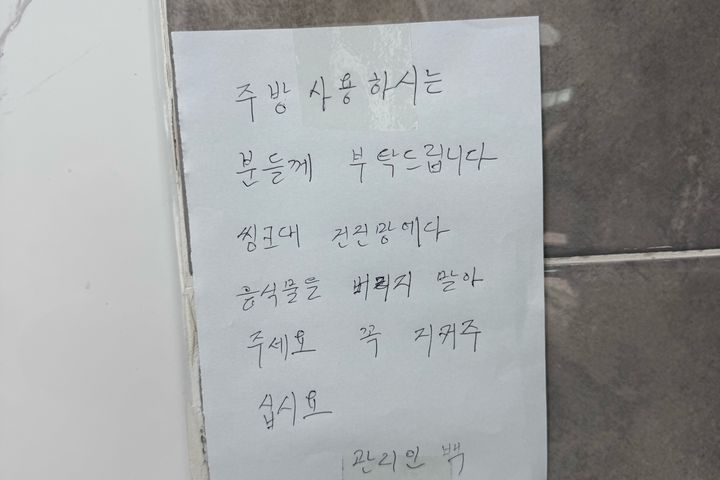 주방 사용하시는
분들께 부탁드립니다
씽크대 건전망에다
음식물을 버리지 말아
주세요 꼭 지켜주
십시요
관리인 백